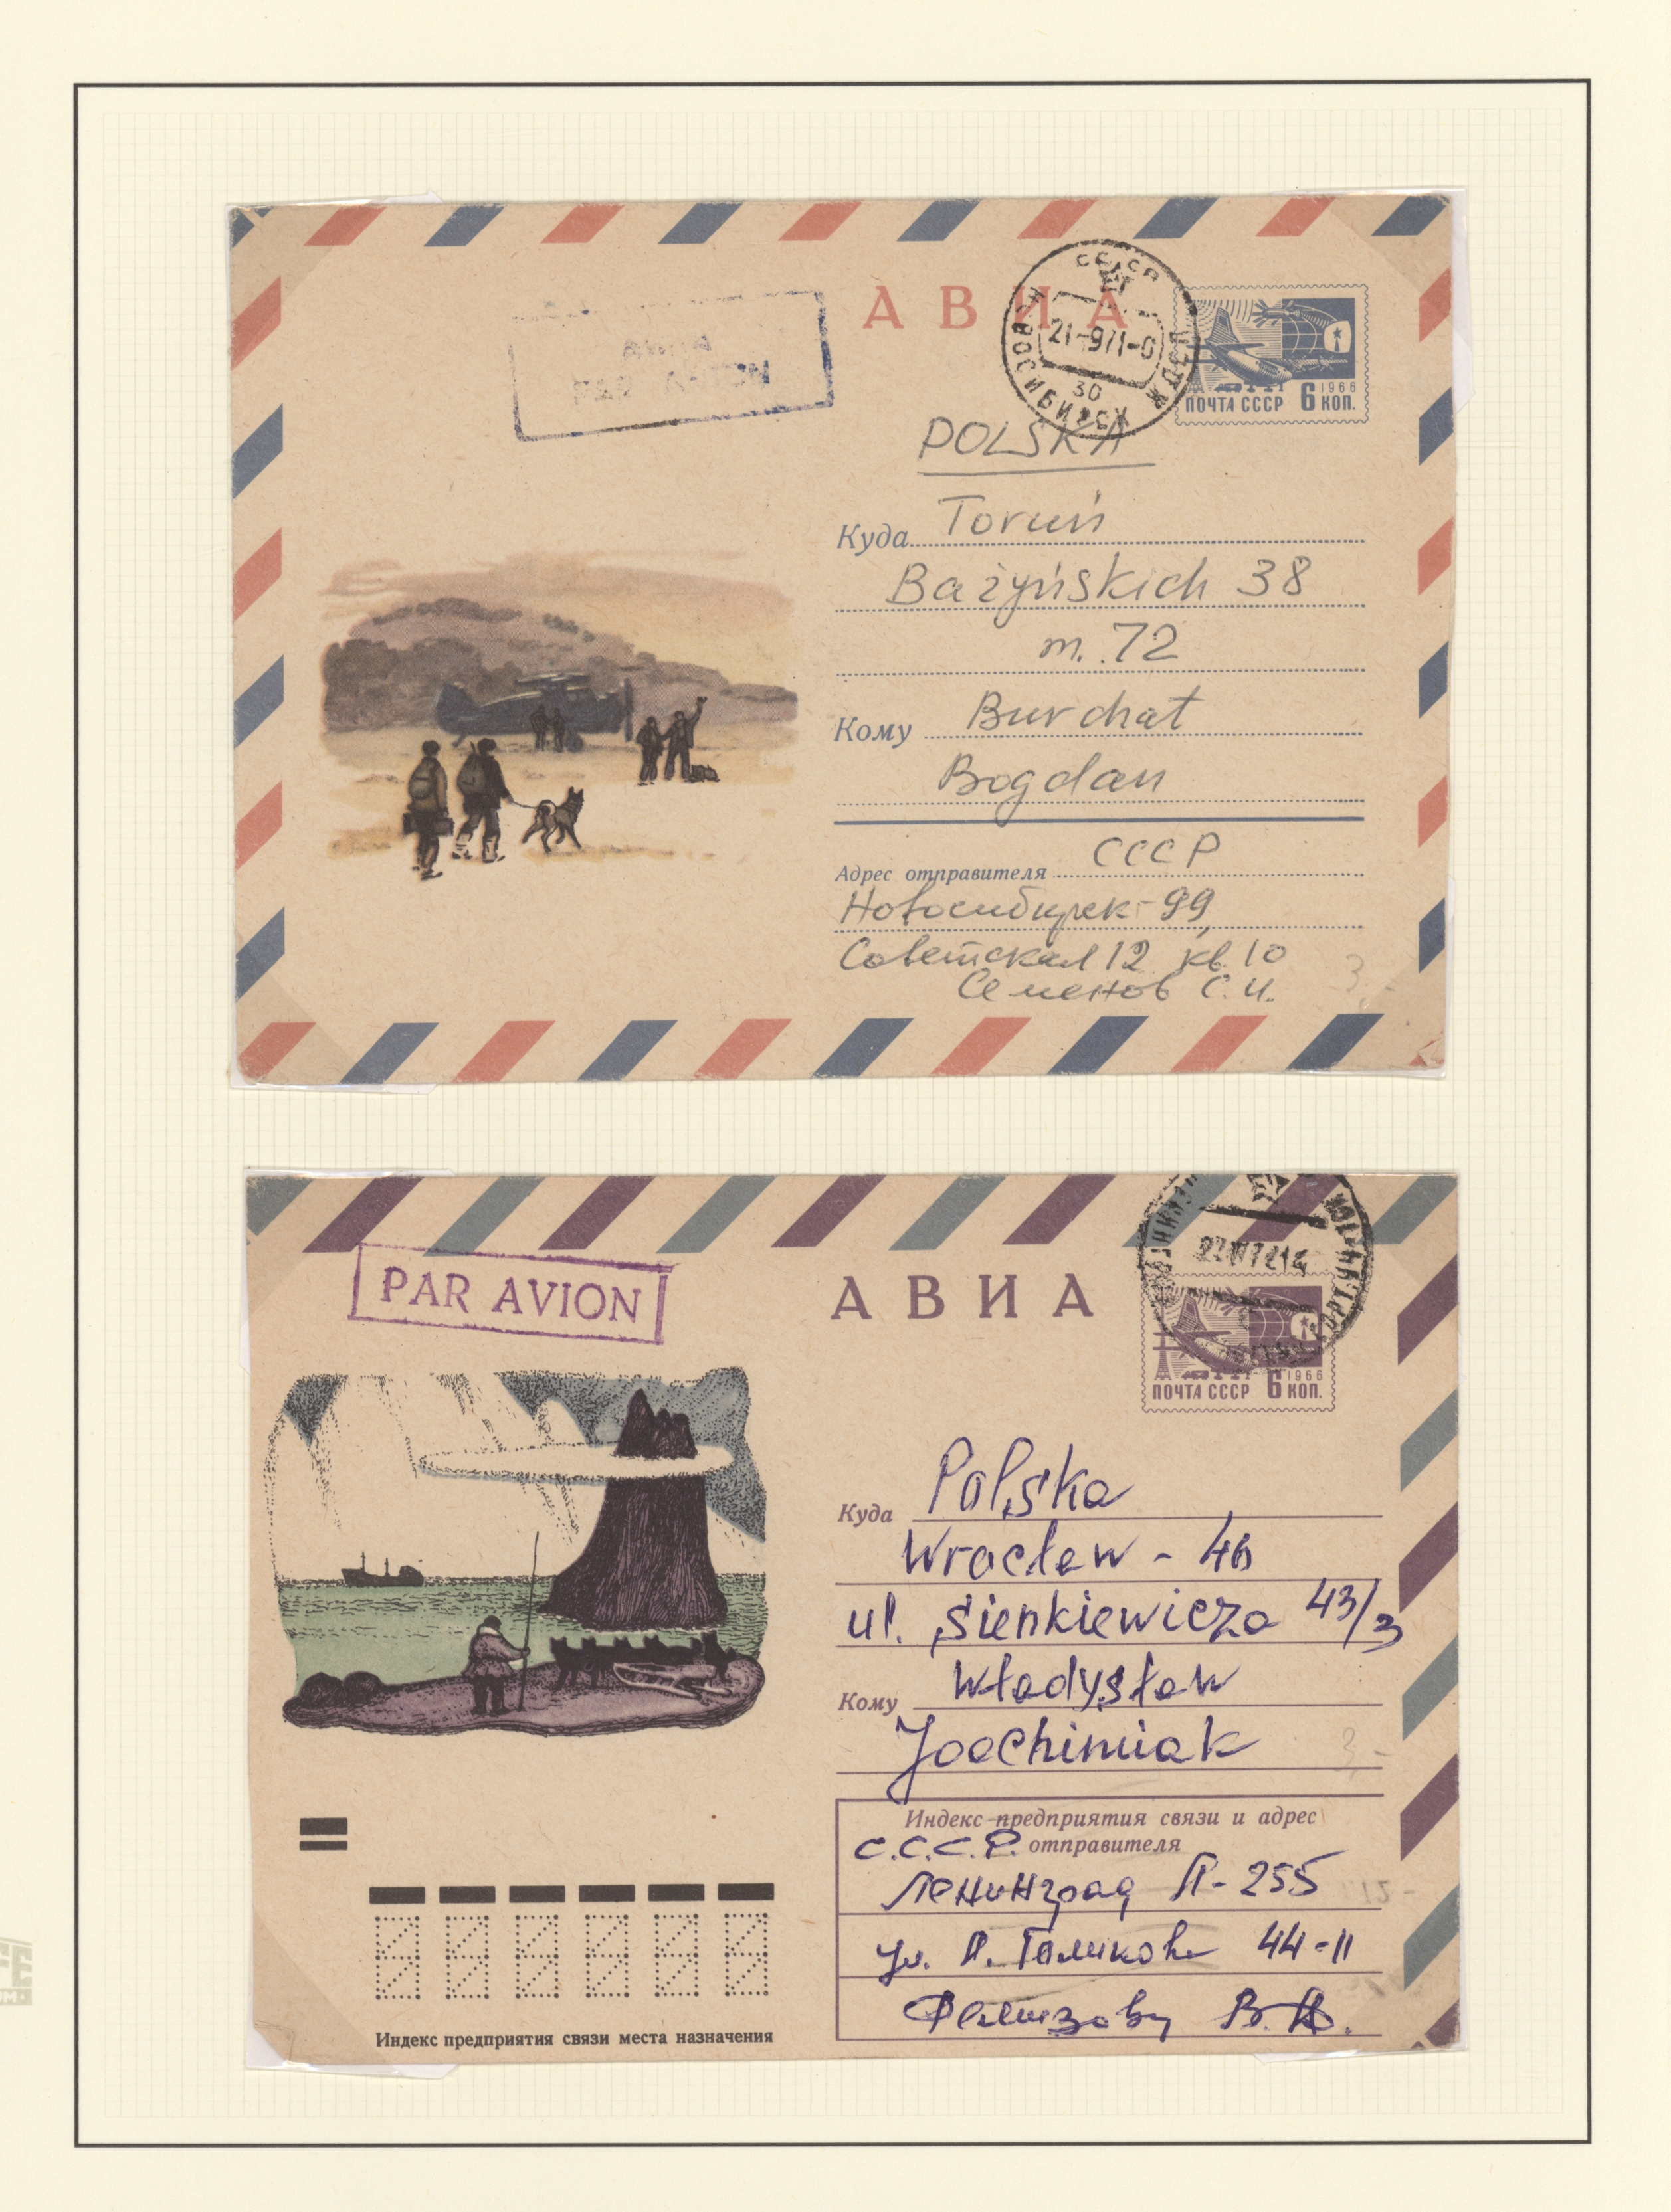 АВИА
PAR AVION
АВИА
СССР
НОВОСИБИРСК
21-971-0
30
1966
ПОЧТА СССР 6 КОП.
POLSKA
Куда Toruń
Bażyńskich 38
m. 72
Кому Burchat
Bogdan
Адрес отправителя СССР
Новосибирск-99,
Советская 12 кв. 10
Семенов С. И.
3.-
PAR AVION
АВИА
1966
ПОЧТА СССР 6 КОП.
Куда Polska
Wrocław - 46
ul. Sienkiewicza 43/3
Кому Władysław
Joachimiak
3,-
Индекс предприятия связи и адрес
С.С.С.Р. отправителя
Ленинград П-255
ул. 44-11
В.
Индекс предприятия связи места назначения